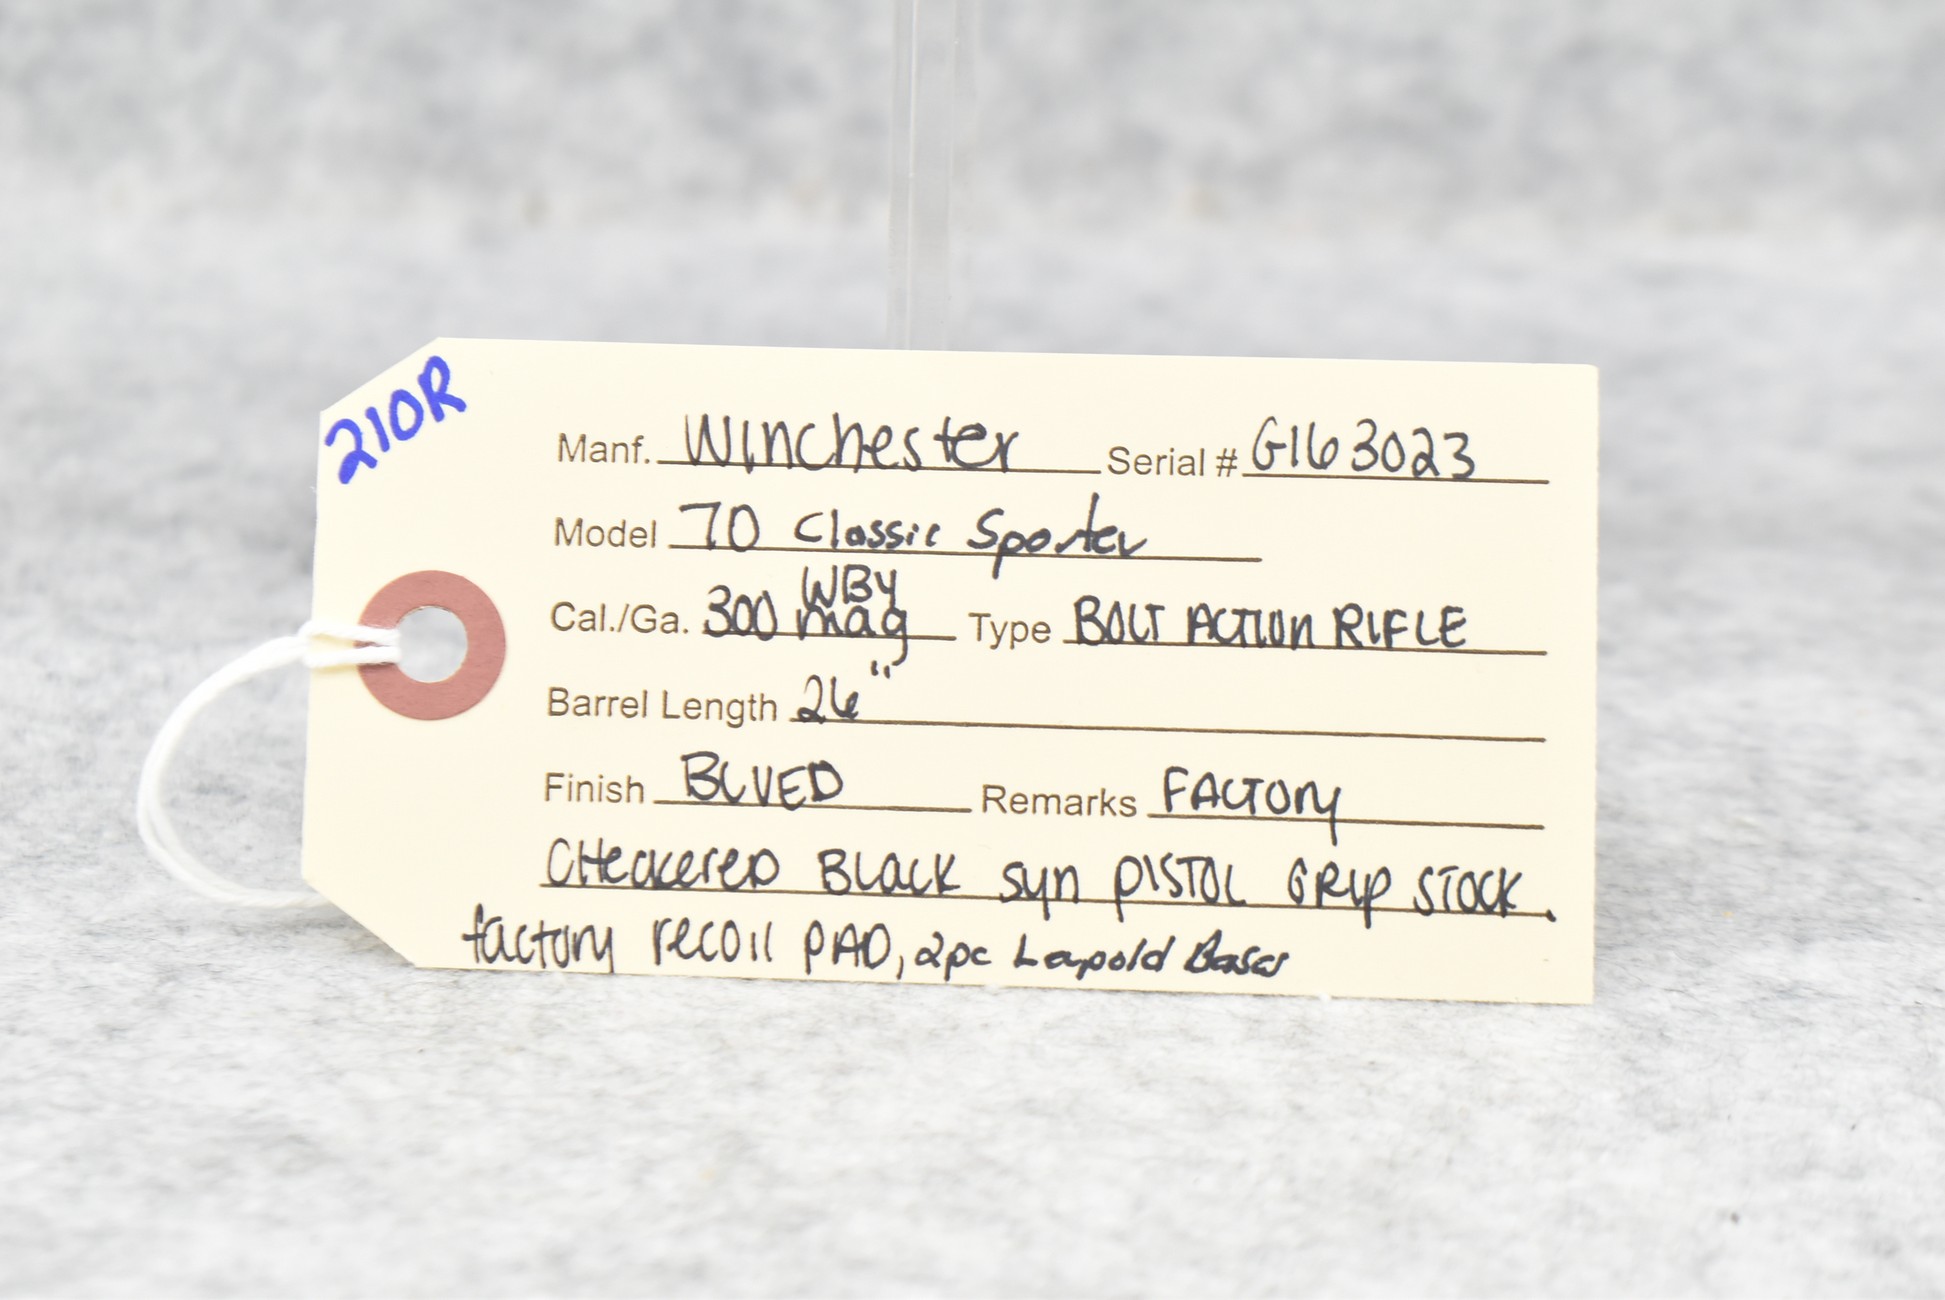 210R
Manf. Winchester Serial # G163023
Model 70 Classic Sporter
Cal./Ga. 300 WBY mag Type BOLT ACTION RIFLE
Barrel Length 26"
Finish BLUED Remarks FACTORY
CHeckereD BLACK syn PISTOL GRIP STOCK.
factory recoil PAD, 2pc Leupold Bases